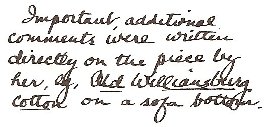 Important additional
comments were written
directly on the piece by
her, eg, Old Williamsburg
cotton on a sofa bottom.